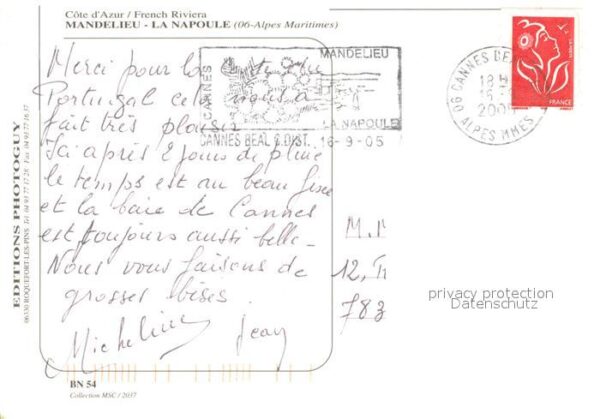 Côte d'Azur / French Riviera
MANDELIEU - LA NAPOULE (06-Alpes Maritimes)
Merci pour la carte du
Portugal cela nous a
fait très plaisir
Ici après 2 jours de pluie
le temps est au beau fixe
et la baie de Cannes
est toujours aussi belle -
Nous vous faisons de
grosses bises.
Micheline Jean
CANNES
MANDELIEU
LA NAPOULE
CANNES BEAL C.DIST. 16-9-05
06 CANNES BEAL
18 H
ALPES MMES
FRANCE
M.
12,
783
privacy protection
Datenschutz
EDITIONS PHOTOGUY
06330 ROQUEFORT-LES-PINS / Tél. 04 93 77 17 28 / Fax 04 93 77 16 37
BN 54
Collection MSC / 2037